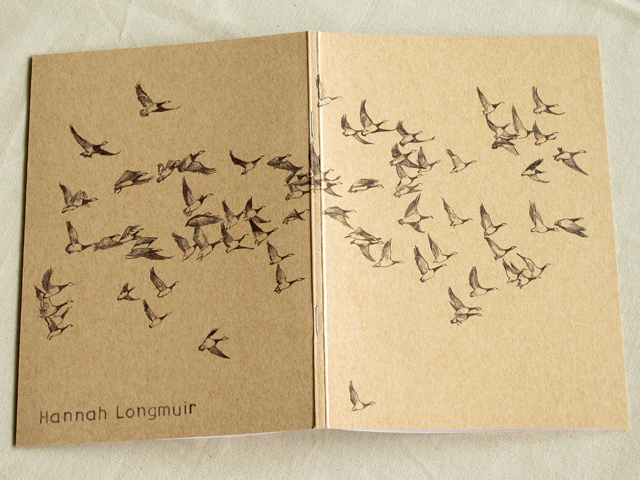 Hannah Longmuir